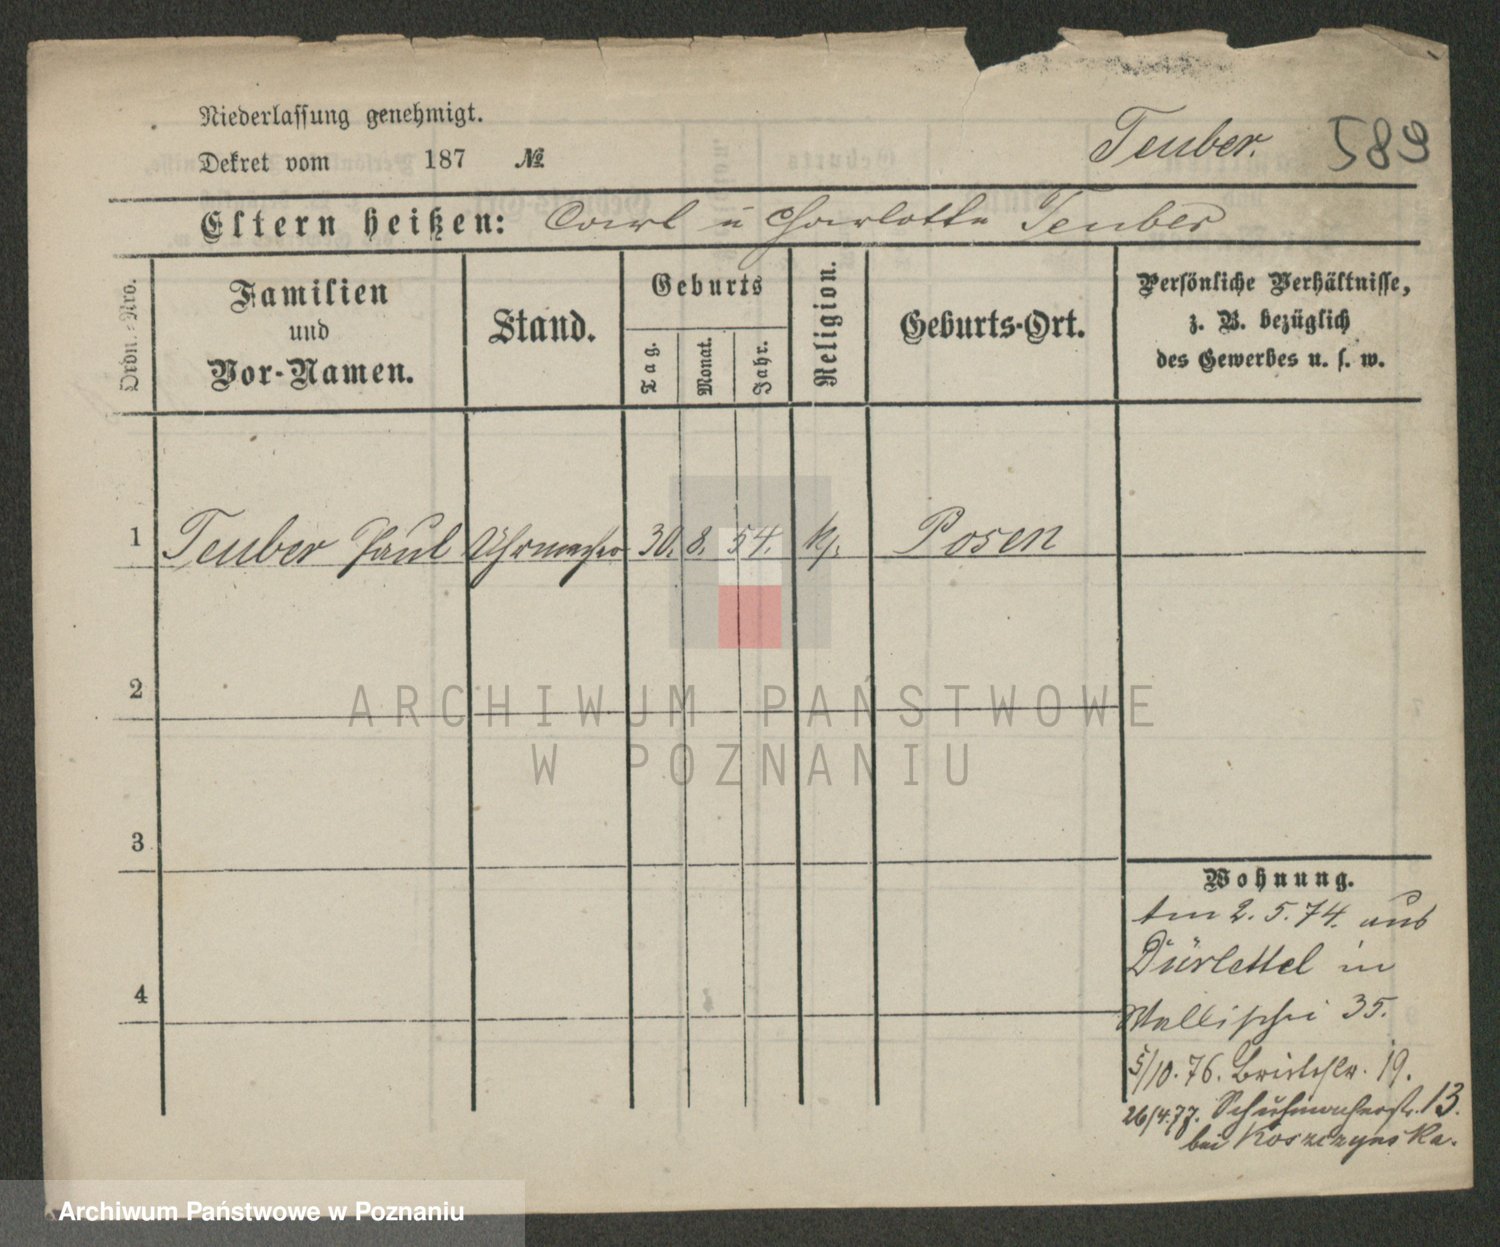 Niederlassung genehmigt.
Dekret vom 187 №
Teuber. 589
Eltern heißen: Carl u Charlotte Teuber
Ordn.-Nro.
Familien
und
Vor-Namen.
Stand.
Geburts
Tag.
Monat.
Jahr.
Religion.
Geburts-Ort.
Persönliche Verhältnisse,
z. B. bezüglich
des Gewerbes u. s. w.
1 Teuber Paul Uhrmacher 30. 8. 54. Posen
2
ARCHIWUM PAŃSTWOWE
W POZNANIU
3
Wohnung.
Am 2. 5. 74. aus
Dürlettel in
4
Wallischei 35.
5/10. 76. 19.
26/4.77. Schuhmacherstr. 13.
bei Koszczynska.
Archiwum Państwowe w Poznaniu